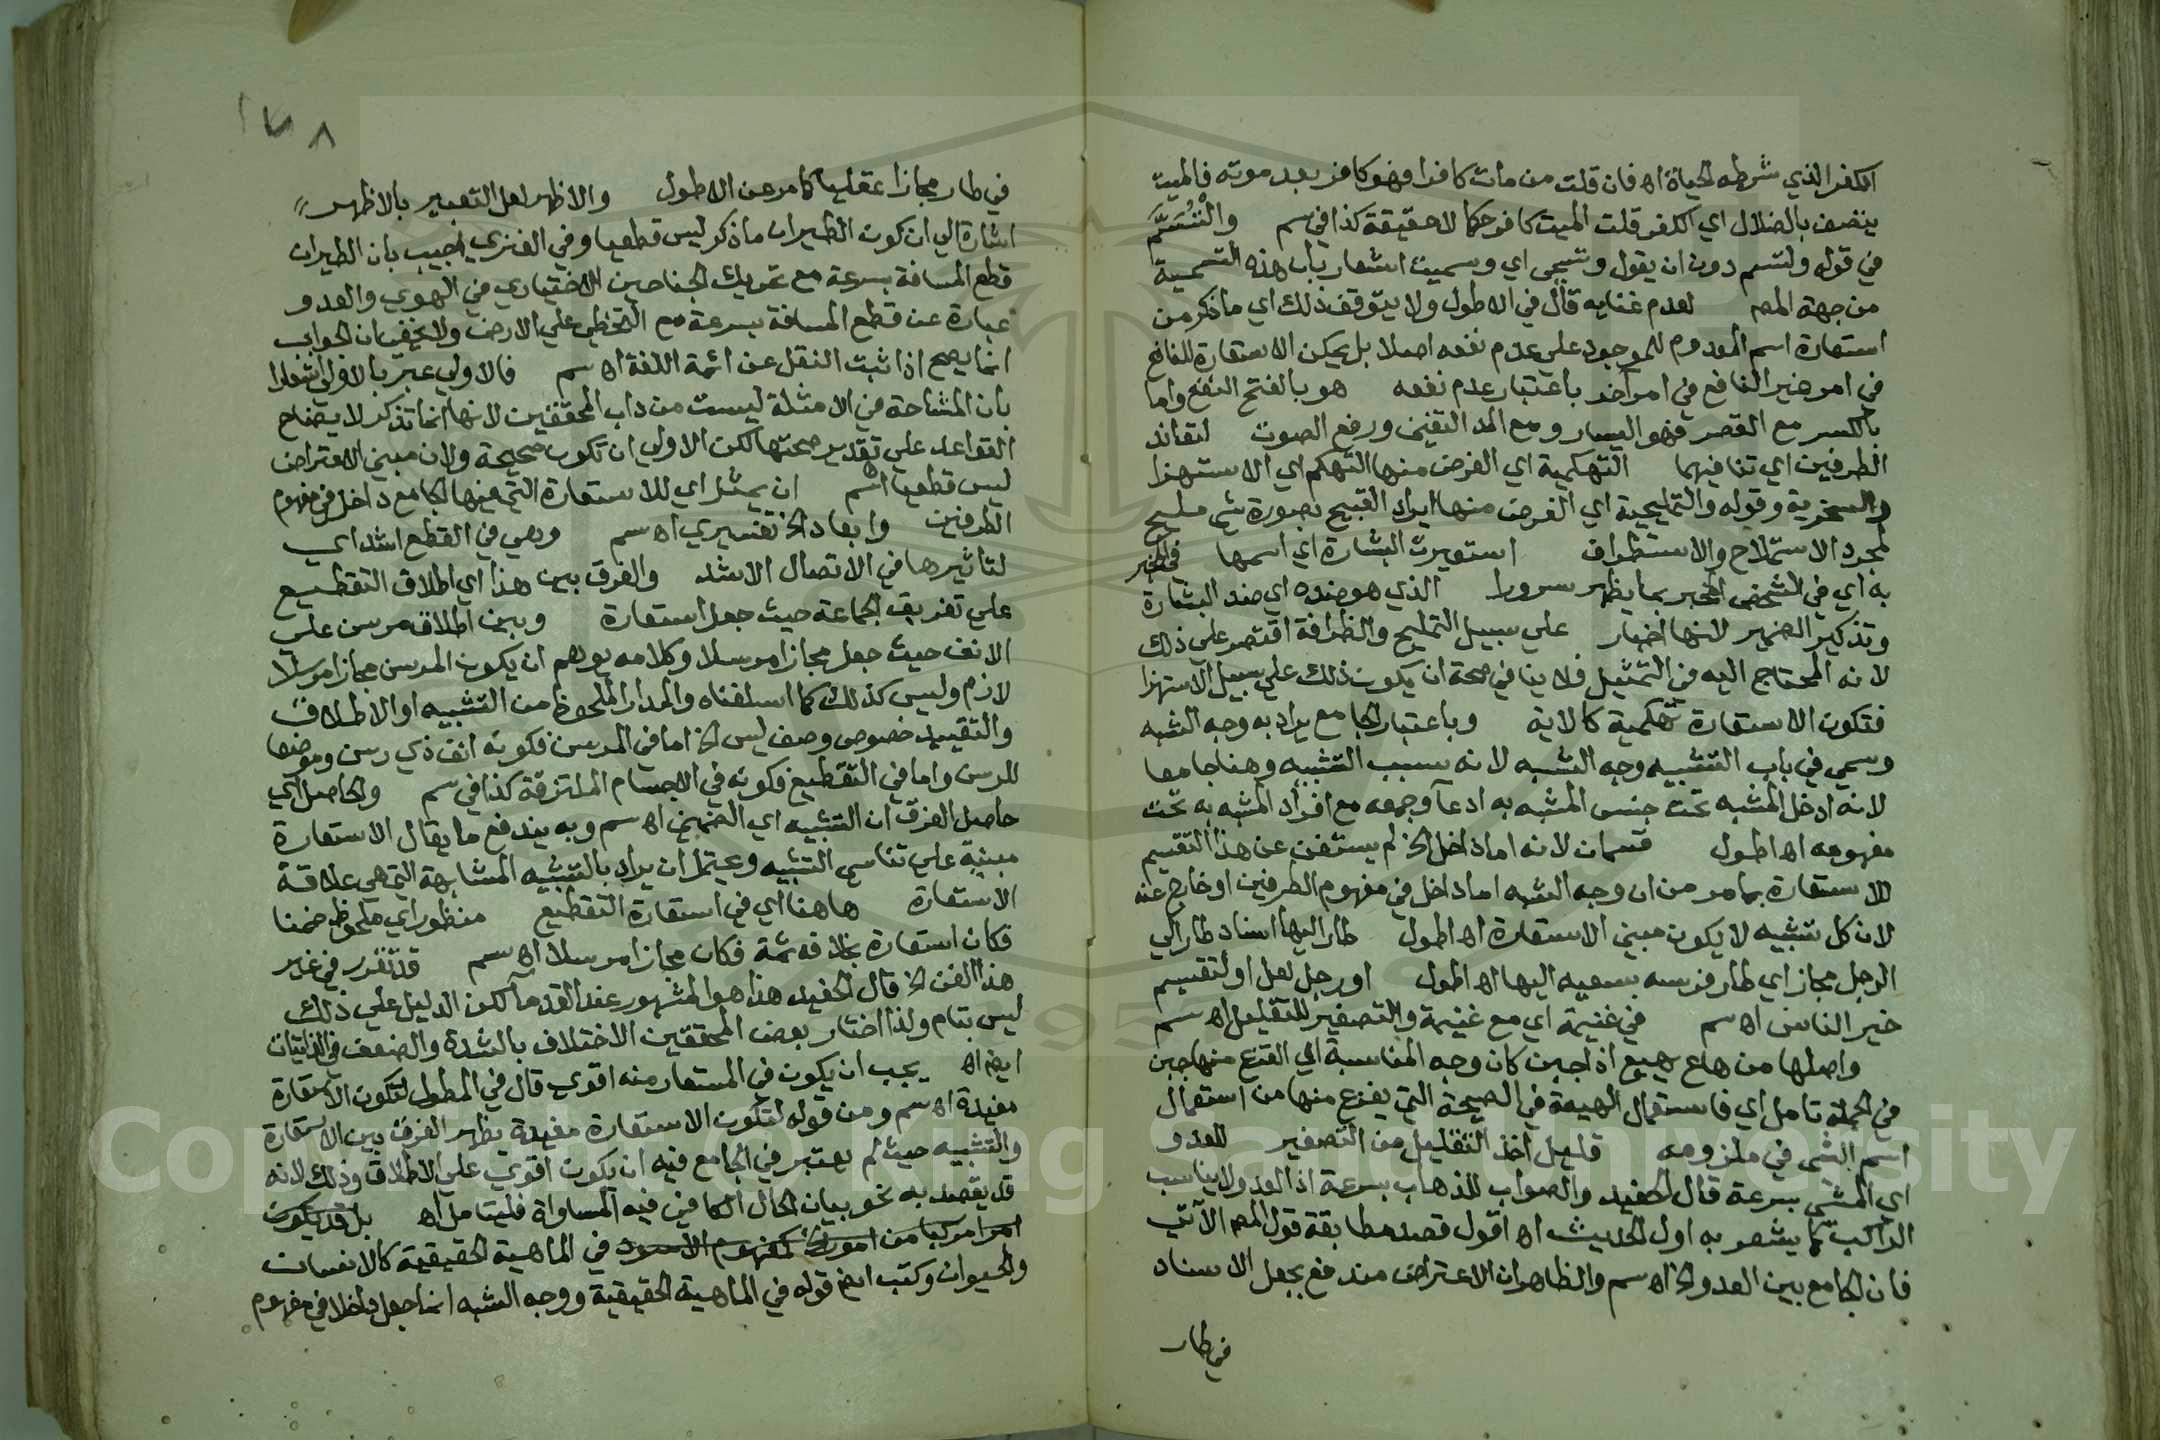 الكفر الذي شرطه الحياة اه فان قلت من مات كافرا فهو كافر بعد موته فالميت
يتصف بالضلال اي الكفر قلت الميت كافر حكما لا حقيقة كذا في سم ولْتُسَمَّ
في قوله ولتسم دون ان يقول وتسمى اي وسميت اشعار بان هذه التسمية
من جهة المص لعدم غنايه قال في الاطول ولا يتوقف ذلك اي ما ذكر من
استعارة اسم المعدوم للموجود علي عدم نفعه اصلا بل يمكن الاستعارة للنافع
في امر غير النافع في امر اخر باعتبار عدم نفعه هو بالفتح النفع واما
بالكسر مع القصر فهو اليسار ومع المد التغني ورفع الصوت لتعاند
الطرفين اي تنافيهما التهكمية اي الغرض منها التهكم اي الاستهزا
والسخرية وقوله والتمليحية اي الغرض منها ايراد القبيح بصورة شي مليح
لمجرد الاستملاح والاستظراف استعيرت البشارة اي اسمها في المخبر
به اي في الشخص المخبر بما يظهر سرورا الذي هو ضده اي ضد البشارة
وتذكير الضمير لانها اخبار علي سبيل التمليح والظرافة اقتصر علي ذلك
لانه المحتاج اليه في التمثيل فلا ينافي صحة ان يكون ذلك علي سبيل الاستهزا
فتكون الاستعارة تهكمية كالاية وباعتبار الجامع يراد به وجه الشبه
وسمي في باب التشبيه وجه الشبه لانه بسبب التشبيه وهنا جامعا
لانه ادخل المشبه تحت جنس المشبه به ادعآ وجمعه مع افراد المشبه به تحت
مفهومه اه اطول قسمان لانه اما داخل الخ لم يستغن عن هذا التقسيم
للاستعارة بما مر من ان وجه الشبه اما داخل في مفهوم الطرفين او خارج عنه
لان كل تشبيه لا يكون مبني الاستعارة اه اطول طار اليها اسناد طار الي
الرجل مجاز اي طار فرسه بسعيه اليها اه اطول او رجل لعل او لتقسيم
خير الناس اه سم في غنيمة اي مع غنيمة والتصغير للتقليل اه سم
واصلها من هاع يهيع اذا جبن كان وجه المناسبة الي الفزع منها جبن
في الجملة تامل اي فاستعمال الهيعة في الصيحة التي يفزع منها من استعمال
اسم الشي في ملزومه قليل اخذ التقليل من التصغير للعدو
اي المشي بسرعة قال الحفيد والصواب للذهاب بسرعة اذ العدو لا يناسب
الراكب كما يشعر به اول الحديث اه اقول قصد مطابقة قول المص الآتي
فان الجامع بين العدو الخ اه سم والظاهر ان الاعتراض مندفع بجعل الاسناد
في طار
١٧٨
في طار مجازا عقليا كما مر عن الاطول والاظهر لعل التعبير بالاظهر
اشارة الي ان كون الطيران ما ذكر ليس قطعيا وفي الفنري اجيب بان الطيران
قطع المسافة بسرعة مع تحريك الجناحين الاختياري في الهوي والعدو
عبارة عن قطع المسافة بسرعة مع التخطي علي الارض ولا يخفي ان الجواب
انما يصح اذا ثبت النقل عن ائمة اللغة اه سم فالاولي عبر بالاولي اشعارا
بان المشاحة في الامثلة ليست من داب المحققين لانها انما تذكر لايضاح
القواعد علي تقدير صحتها لكن الاولي ان تكون صحيحة ولان مبني الاعتراض
ليس قطعيا اه سم ان يمثل اي للاستعارة التي فيها الجامع داخل في مفهوم
الطرفين وابعاد الخ تفسيري اه سم وهي في القطع اشد اي
لتاثيرها في الاتصال الاشد والفرق بين هذا اي اطلاق التقطيع
علي تفريق الجماعة حيث جعل استعارة وبين اطلاق مرسن علي
الانف حيث جعل مجازا مرسلا وكلامه يوهم ان يكون المرسن مجازا مرسلا
لازم وليس كذلك كما اسلفناه والمدار الملحوظ من التشبيه او الاطلاق
والتقييد خصوص وصف ليس الخ اما في المرسن فكونه انف ذي رسن وموضعا
للرسن واما في التقطيع فكونه في الاجسام الملتزقة كذا في سم والحاصل اي
حاصل الفرق ان التشبيه اي الضمني اه سم وبه يندفع ما يقال الاستعارة
مبنية علي تناسي التشبيه ويحتمل ان يراد بالتشبيه المشابهة التي هي علاقة
الاستعارة هاهنا اي في استعارة التقطيع منظور اي ملحوظ ضمنا
فكان استعارة بخلافه ثمة فكان مجازا مرسلا اه سم قد تقرر في غير
هذا الفن الخ قال الحفيد هذا هو المشهور عند القدما لكن الدليل علي ذلك
ليس بتام ولذا اختار بعض المحققين الاختلاف بالشدة والضعف في الذاتيات
ايض اه يجب ان يكون في المستعار منه اقوي قال في المطول لتكون الاستعارة
مفيدة اه سم ومن قوله لتكون الاستعارة مفيدة يظهر الفرق بين الاستعارة
والتشبيه حيث لم يعتبر في الجامع فيه ان يكون اقوي علي الاطلاق وذلك لانه
قد يقصد به نحو بيان الحال الكافي فيه المساواة فليتامل اه بل قد يكون
امرا مركبا من امور الخ كمفهوم الاسود في الماهية الحقيقية كالانسان
والحيوان وكتب ايض قوله في الماهية الحقيقية ووجه الشبه انما جعل داخلا في مفهوم